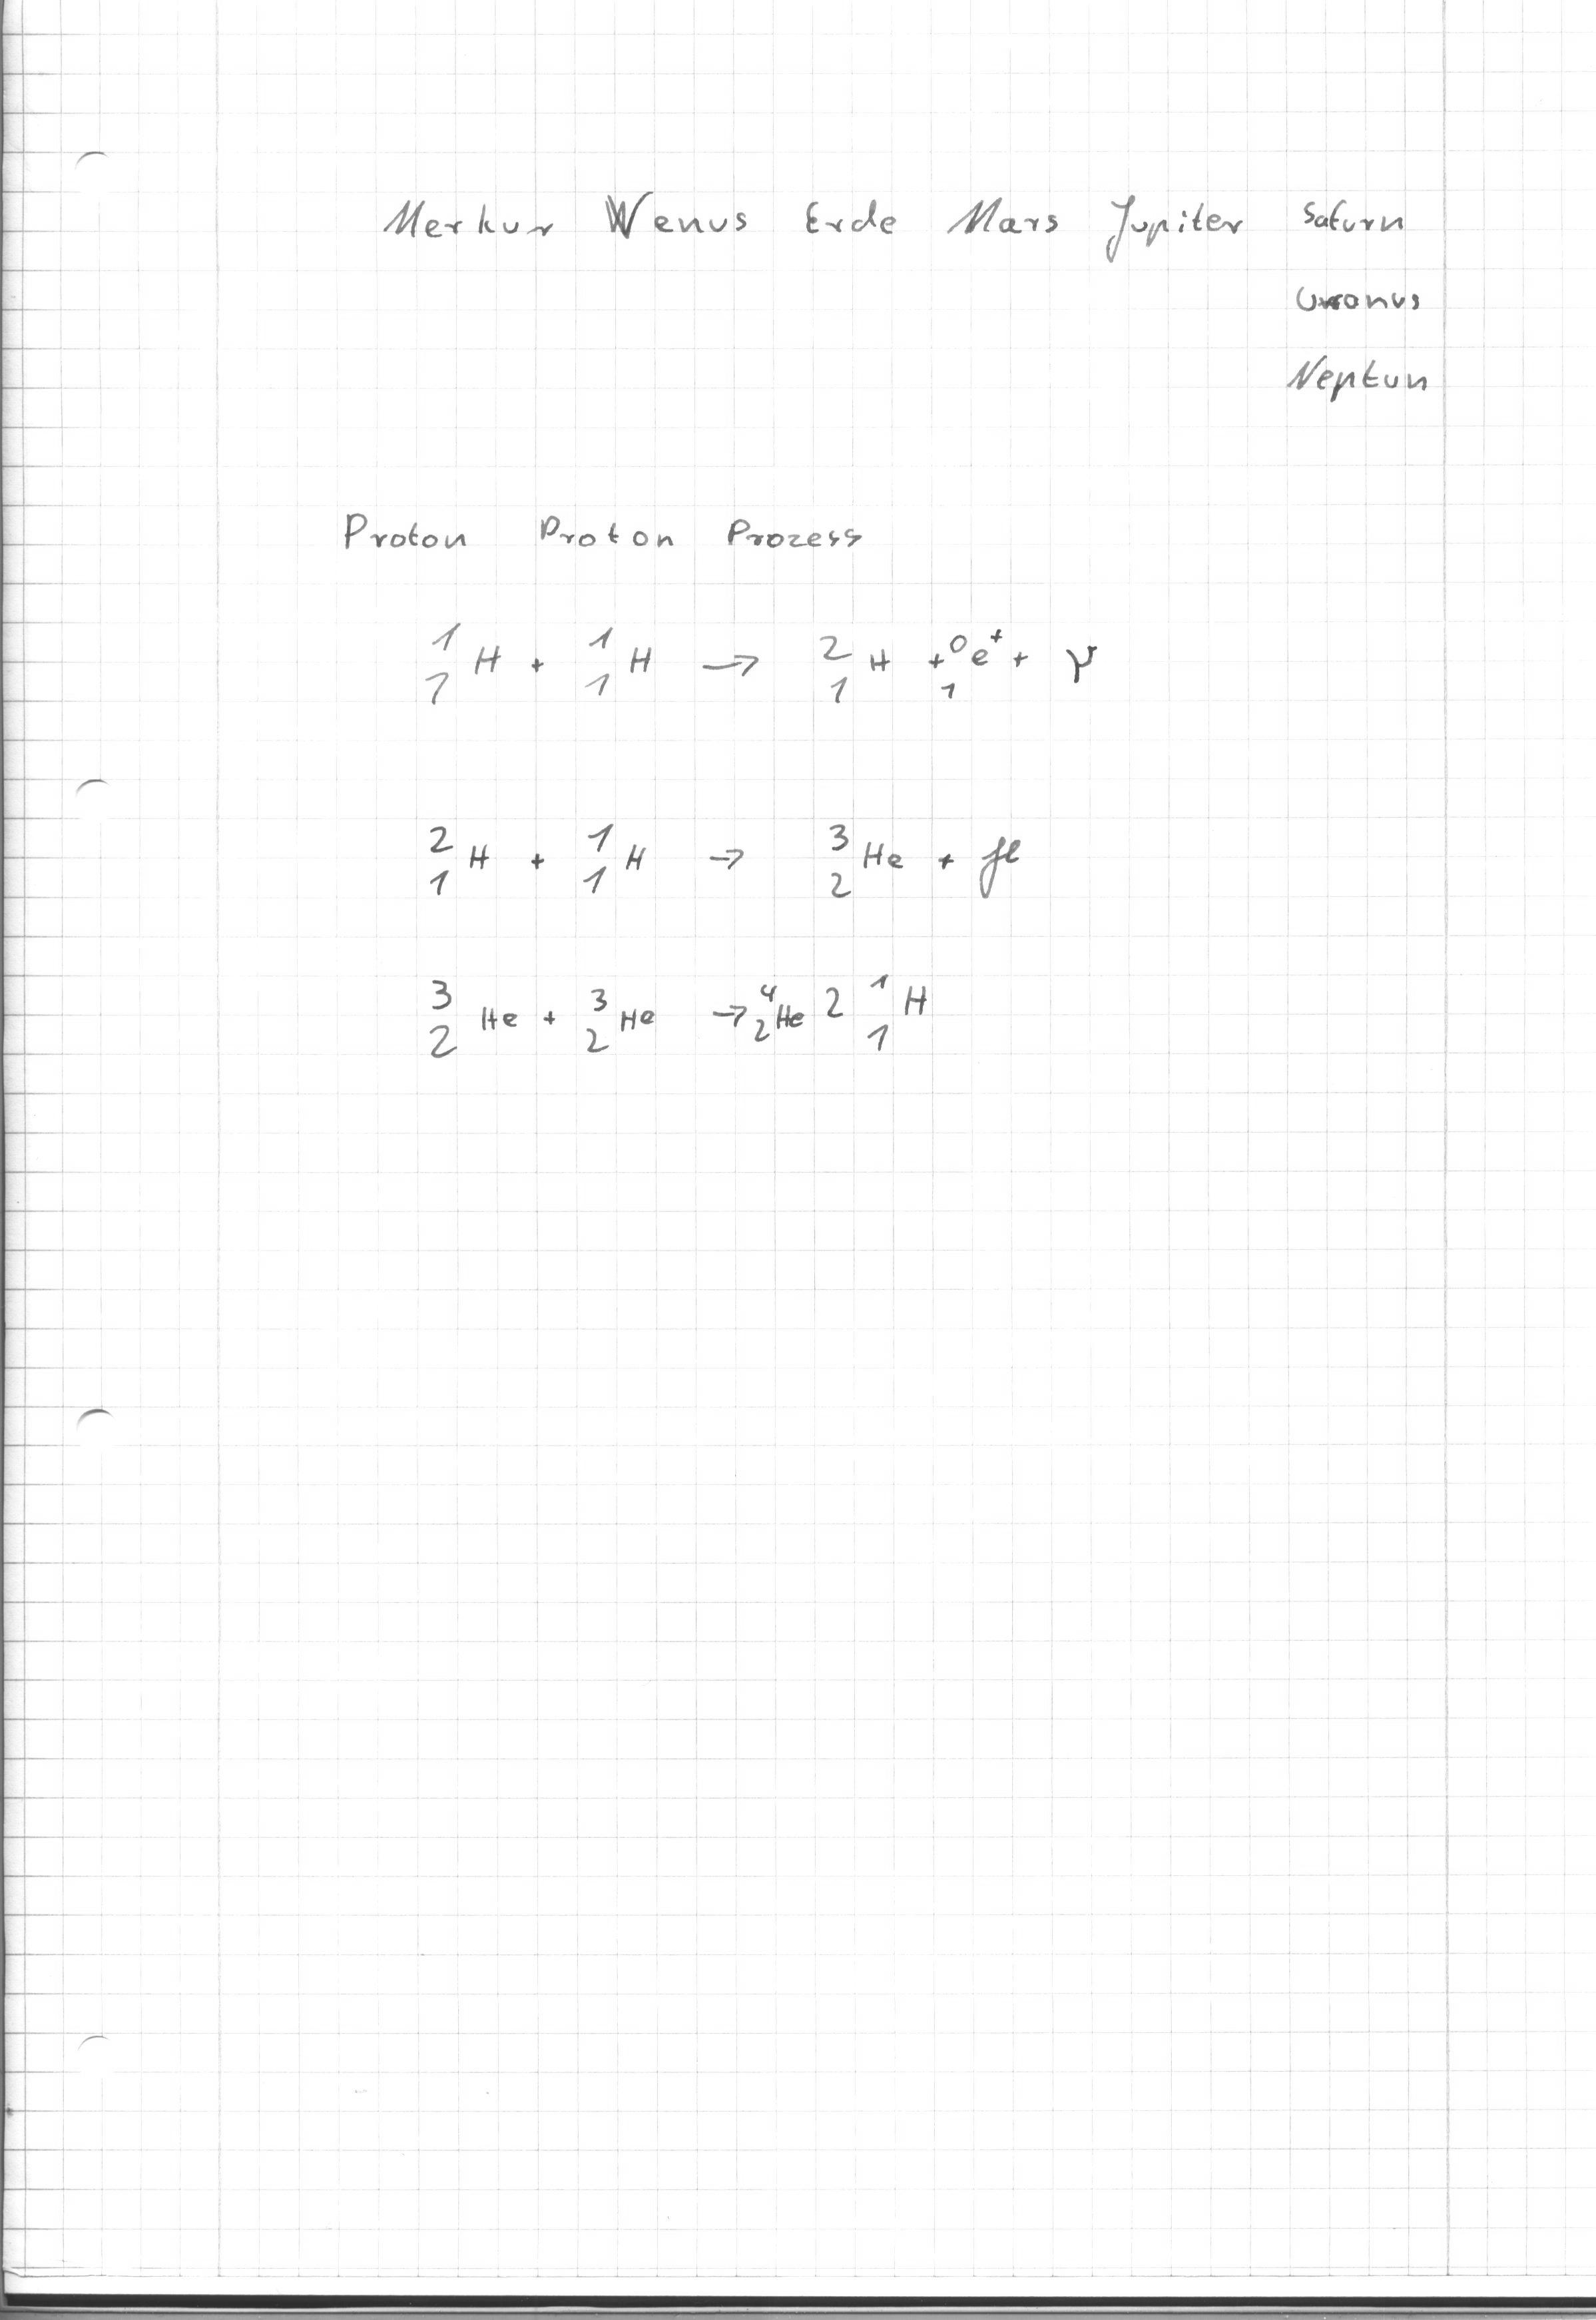 Merkur Wenus Erde Mars Jupiter Saturn
Uranus
Neptun
Proton Proton Prozess
¹₁H + ¹₁H → ²₁H + ⁰₁e⁺ +
²₁H + ¹₁H → ³₂He +
³₂He + ³₂He → ⁴₂He 2 ¹₁H